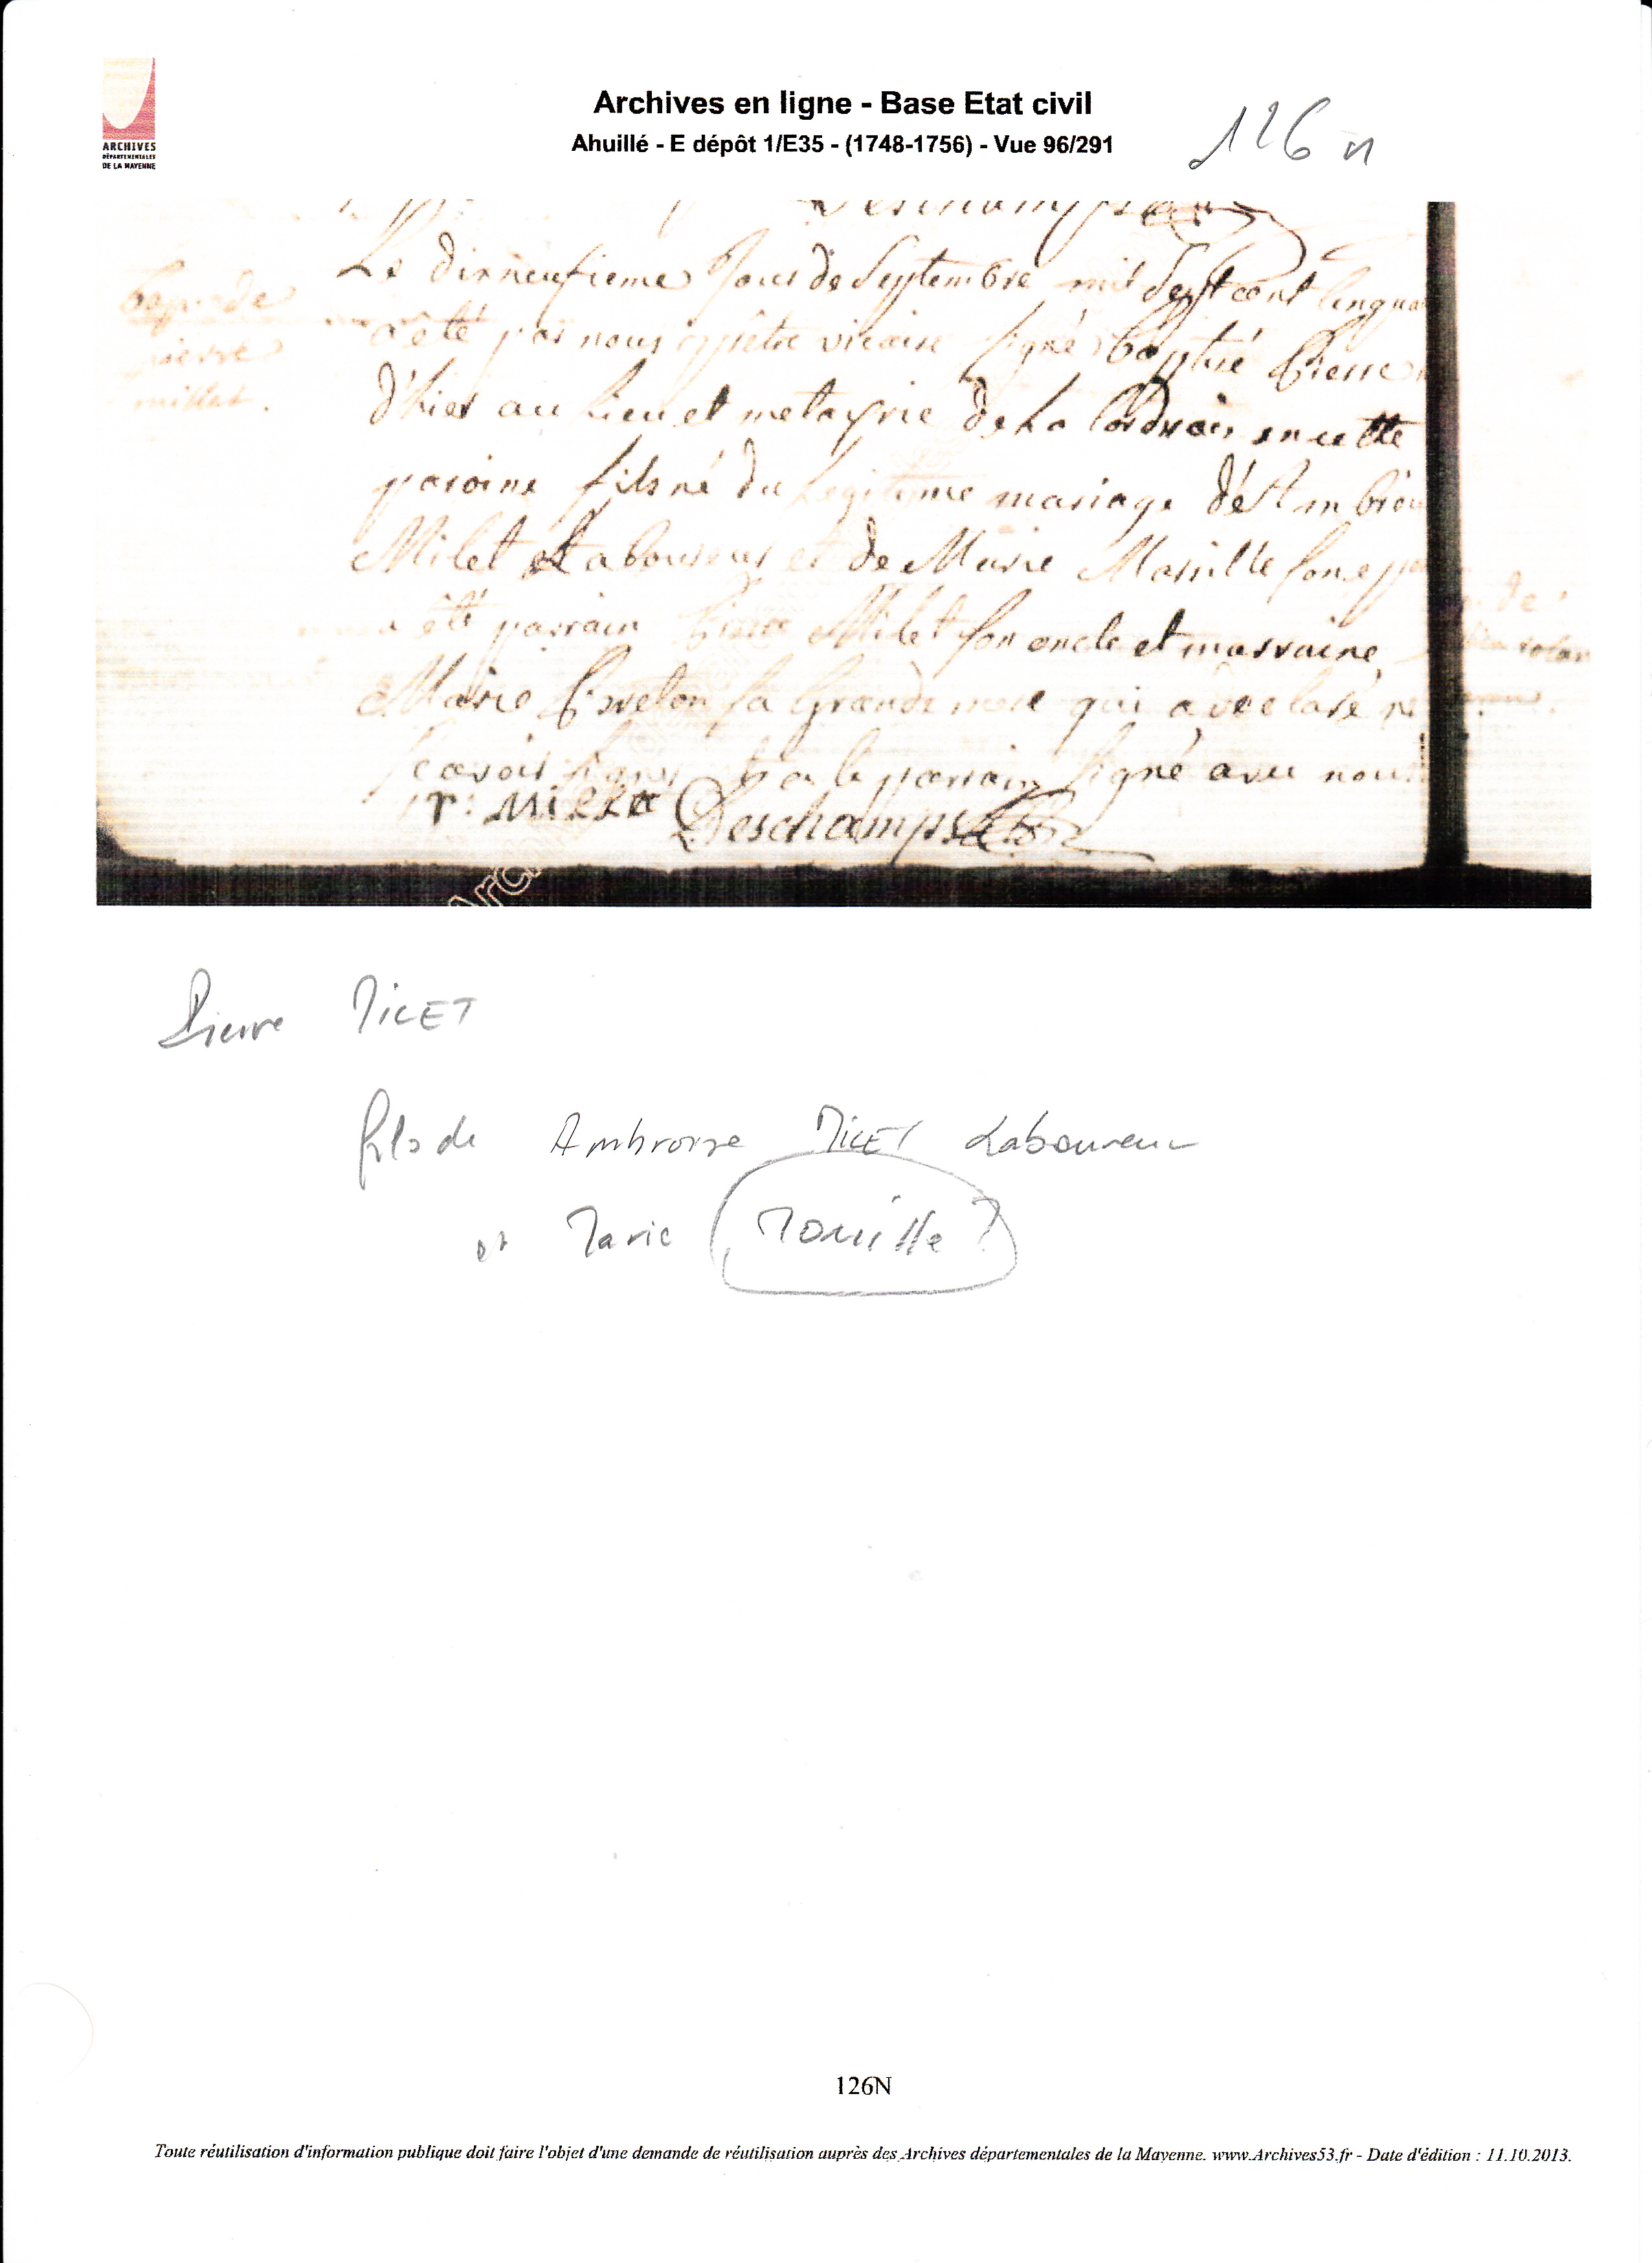 ARCHIVES
DÉPARTEMENTALES
DE LA MAYENNE
Archives en ligne - Base Etat civil
Ahuillé - E dépôt 1/E35 - (1748-1756) - Vue 96/291
126 n
Deschamps
Bap. de
pierre
millet.
Le dixneufieme Jour de Septembre mil Sept cent Cinqua
a été par nous prêtre vicaire signé baptisé Pierre
d'hier au lieu et metayrie de La en cette
paroisse fils né du Legitime mariage d'Ambroi
Milet Laboureur et de Marie son
a été parrain Pierre Milet son oncle et marraine
Marie sa Grande mere qui a declaré ne
scavoir signer le parrain signé avec nous
P: Millet Deschamps
Archi
Pierre MILET
fils de Ambroise MILET Laboureur
et Marie Marille ?
126N
Toute réutilisation d'information publique doit faire l'objet d'une demande de réutilisation auprès des Archives départementales de la Mayenne. www.Archives53.fr - Date d'édition : 11.10.2013.